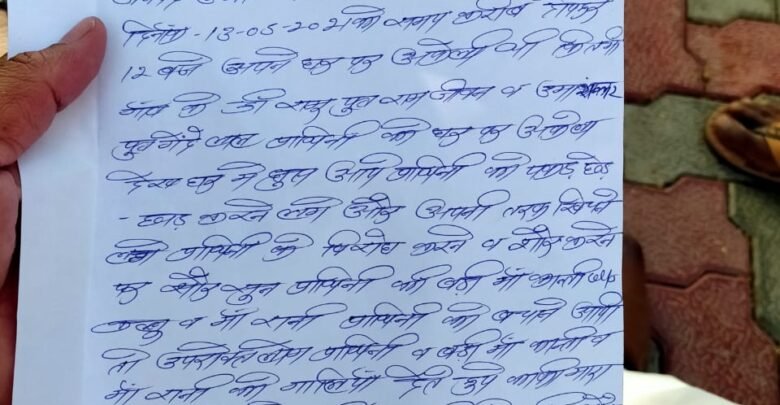 दिनांक -13-05-2021 को समय करीब दोपहर
12 बजे अपने घर पर अकेली थी कि तभी
गांव के ही रामू पुत्र राम जीवन व उमाशंकर
पुत्र गेंदे लाल प्रार्थिनी को घर पर अकेला
देख घर में घुस आये प्रार्थिनी को पकड़ छेड़
- छाड़ करने लगे और अपनी तरफ खिंचने
लगे प्रार्थिनी के विरोध करने व शोर करने
पर शोर सुन प्रार्थिनी की बड़ी मां कान्ती w/o
व मां रानी प्रार्थिनी को बचाने आयी
तो उपरोक्त लोग प्रार्थिनी व बड़ी मां कान्ती व
मां रानी को गालियां देते हुये